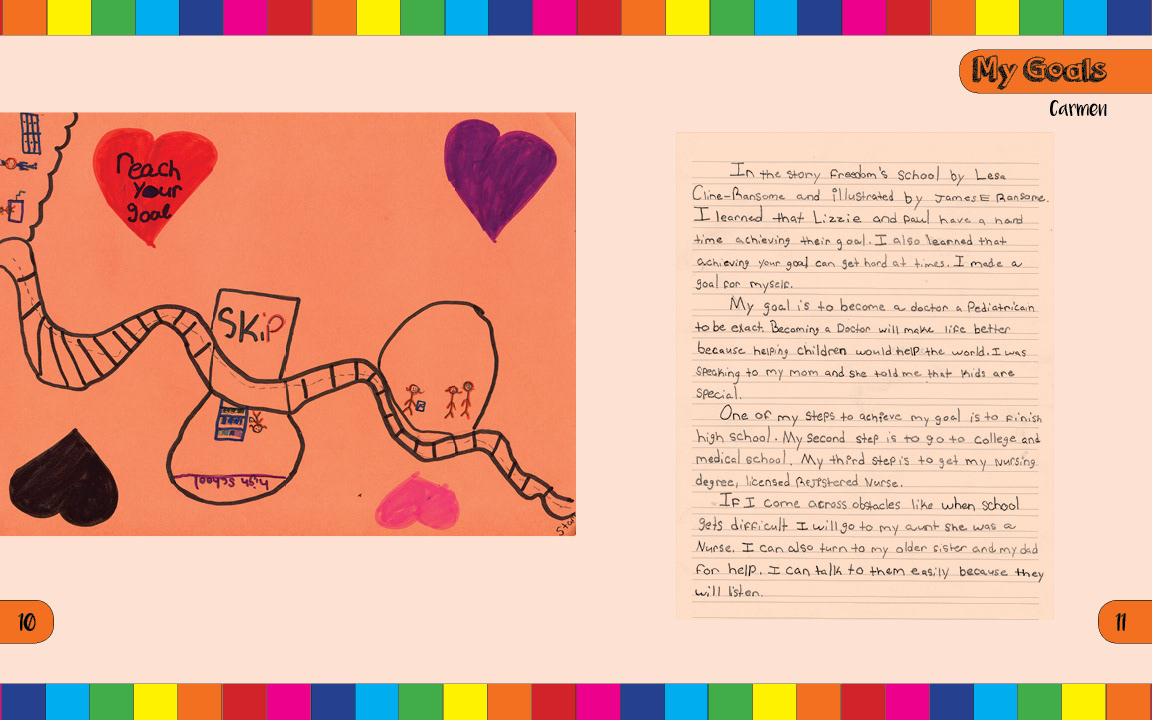 My Goals
Carmen
Reach
your
goal
SKiP
high school
Star
In the story Freedom's School by Lesa
Cline-Ransome and illustrated by James E Ransome.
I learned that Lizzie and Paul have a hard
time achieving their goal. I also learned that
achieving your goal can get hard at times. I made a
goal for myself.
My goal is to become a doctor a Pediatricain
to be exact. Becoming a Doctor will make life better
because helping children would help the world. I was
speaking to my mom and she told me that kids are
special.
One of my steps to achieve my goal is to finish
high school. My second step is to go to college and
medical school. My third step is to get my nursing
degree, licensed Regstered Nurse.
If I come across obstacles like when school
gets difficult I will go to my aunt she was a
Nurse. I can also turn to my older sister and my dad
for help. I can talk to them easily because they
will listen.
10
11